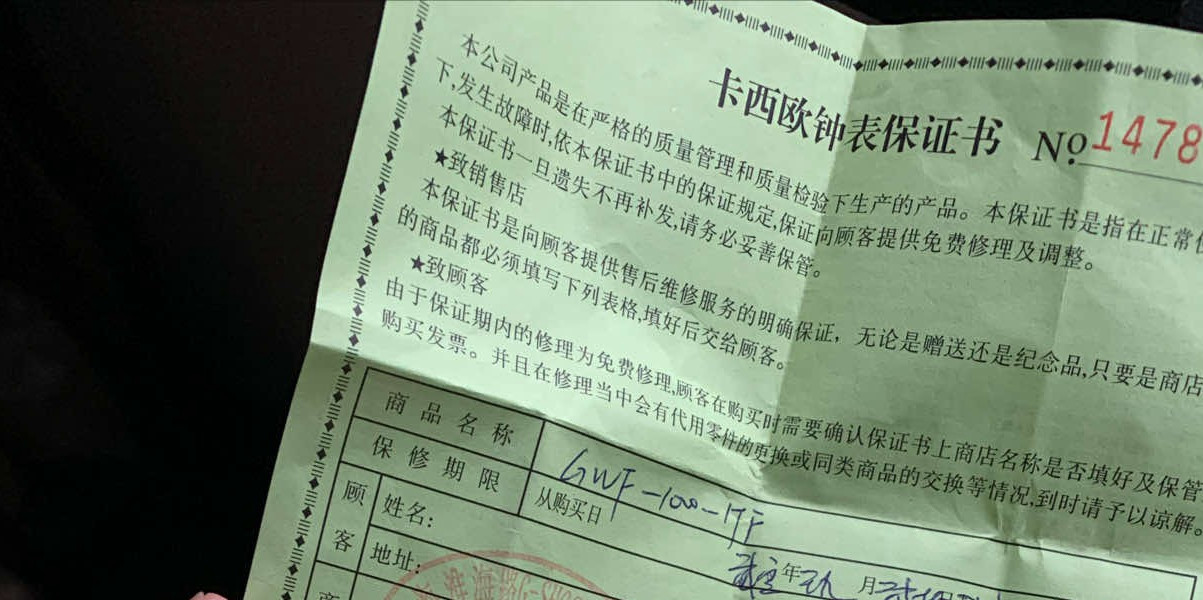 卡西欧钟表保证书 No. 1478
本公司产品是在严格的质量管理和质量检验下生产的产品。本保证书是指在正常
下,发生故障时,依本保证书中的保证规定,保证向顾客提供免费修理及调整。
本保证书一旦遗失不再补发,请务必妥善保管。
★致销售店
本保证书是向顾客提供售后维修服务的明确保证，无论是赠送还是纪念品,只要是商店
的商品都必须填写下列表格,填好后交给顾客。
★致顾客
由于保证期内的修理为免费修理,顾客在购买时需要确认保证书上商店名称是否填好及保管
购买发票。并且在修理当中会有代用零件的更换或同类商品的交换等情况,到时请予以谅解。
商品名称 GWF-1000-1JF
保修期限 从购买日 年 月
顾客 姓名:
地址:
淮海路G-SHOC